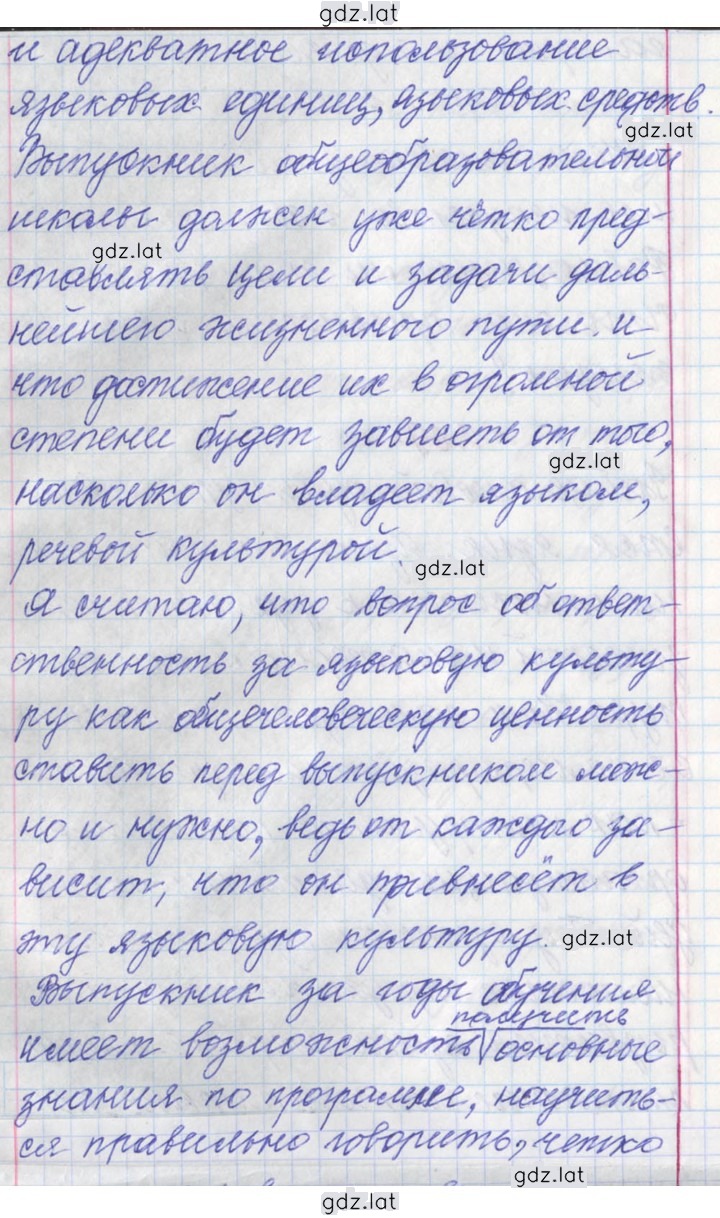 gdz.lat
и адекватное использование
языковых единиц, языковых средств.
gdz.lat
Выпускник общеобразовательной
школы должен уже чётко пред-
gdz.lat
ставлять цели и задачи даль-
нейшего жизненного пути. и
что достижение их в огромной
степени будет зависеть от того,
gdz.lat
насколько он владеет языком,
речевой культурой.
gdz.lat
Я считаю, что вопрос об ответ-
ственность за языковую культу-
ру как общечеловеческую ценность
ставить перед выпускником мож-
но и нужно, ведь от каждого за-
висит, что он привнесёт в
эту языковую культуру.
gdz.lat
Выпускник за годы обучения
получить
имеет возможность основные
знания по программе, научить-
ся правильно говорить, четко
gdz.lat
gdz.lat